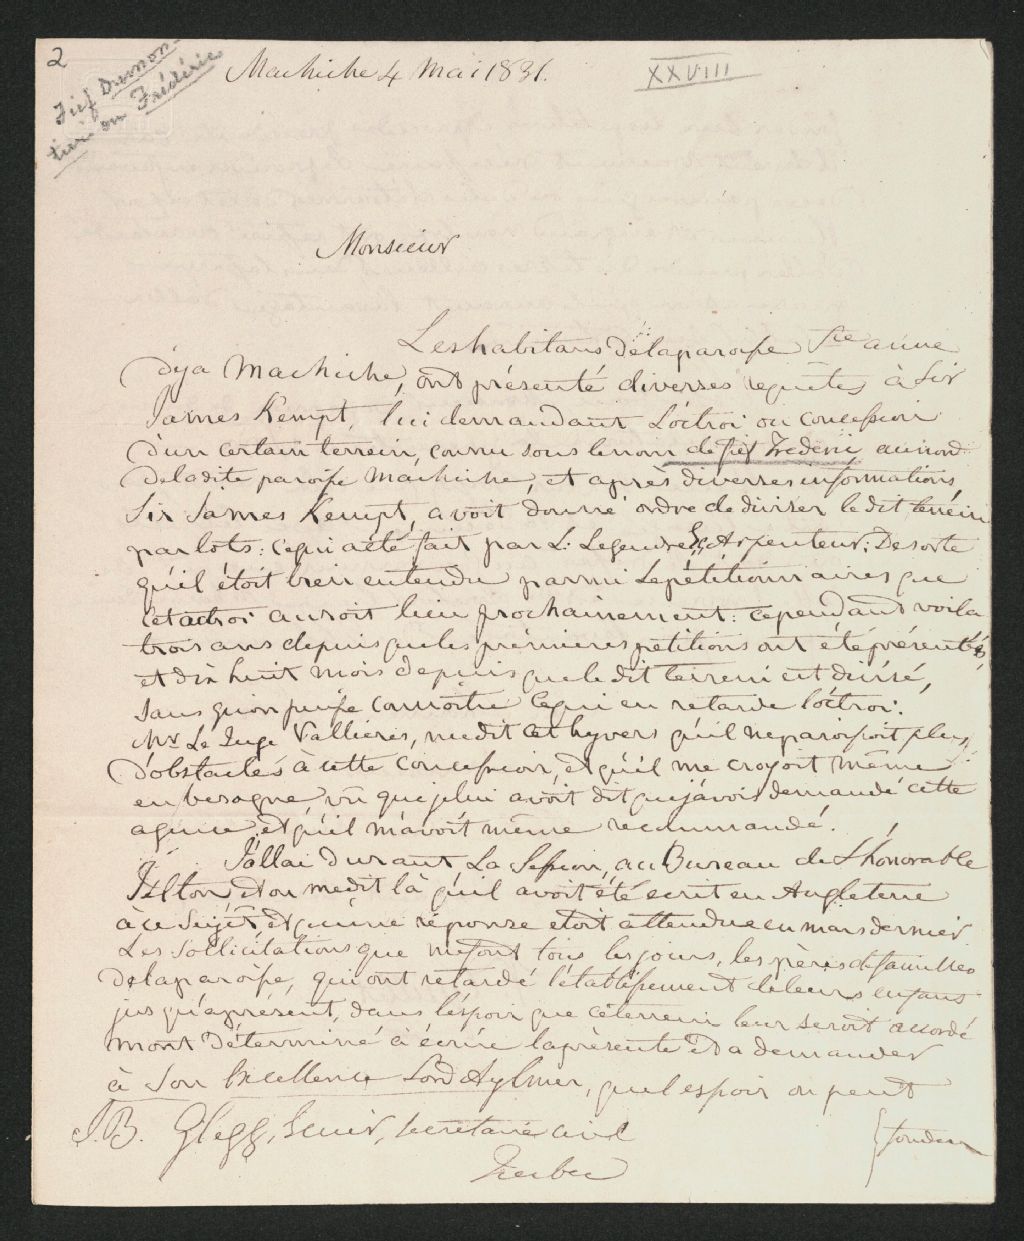 2
Fief Dumon-
tier ou Frédéric
Machiche 4 Mai 1831.
XXVIII
Monsieur
Les habitans de la paroisse Ste anne
d'ya Machiche, ont présenté diverses requêtes à Sir
James Kempt, lui demandant l'octroi ou concession
d'un certain terrein, connu sous le nom de fief Frederic au nord
de la dite paroisse Machiche, et après diverses informations
Sir James Kempt, avoit donné ordre de diviser le dit terrein
par lots: ce qui a été fait par L. Legendre Ec. Arpenteur; De sorte
qu'il étoit bien entendu parmi les pétitionnaires que
cet octroi auroit lieu prochainement: cependant voila
trois ans depuis que les premieres petitions ont été présentés
et dix huit mois depuis que le dit terrein est divisé,
sans qu'on puisse connoitre ce qui en retarde l'octroi.
Mr Le Juge Vallieres, me dit cet hyver qu'il ne paroissoit plus
d'obstacles à cette concession, et qu'il me croyoit même
en besogne vû que je lui avoit dit que j'avois demandé cette
agence et qu'il m'avoit même recommandé.
J'allai durant La Session, au Bureau de L'honorable
Felton, et on me dit là qu'il avoit été écrit en Angleterre
à ce sujet, et qu'une réponse etoit attendue en mars dernier
Les sollicitations que me font tous les jours, les pères de familles
de la paroisse, qui ont retardé l'établissement de leurs enfans
jusqu'aprésent, dans l'espoir que ce terrein leur seroit accordé
m'ont déterminé à écrire la présente et a demander
à Son Excellence Lord Aylmer, quel espoir on peut
J.B. Glegg, Ecuier, secretaire civil
fonder
Quebec